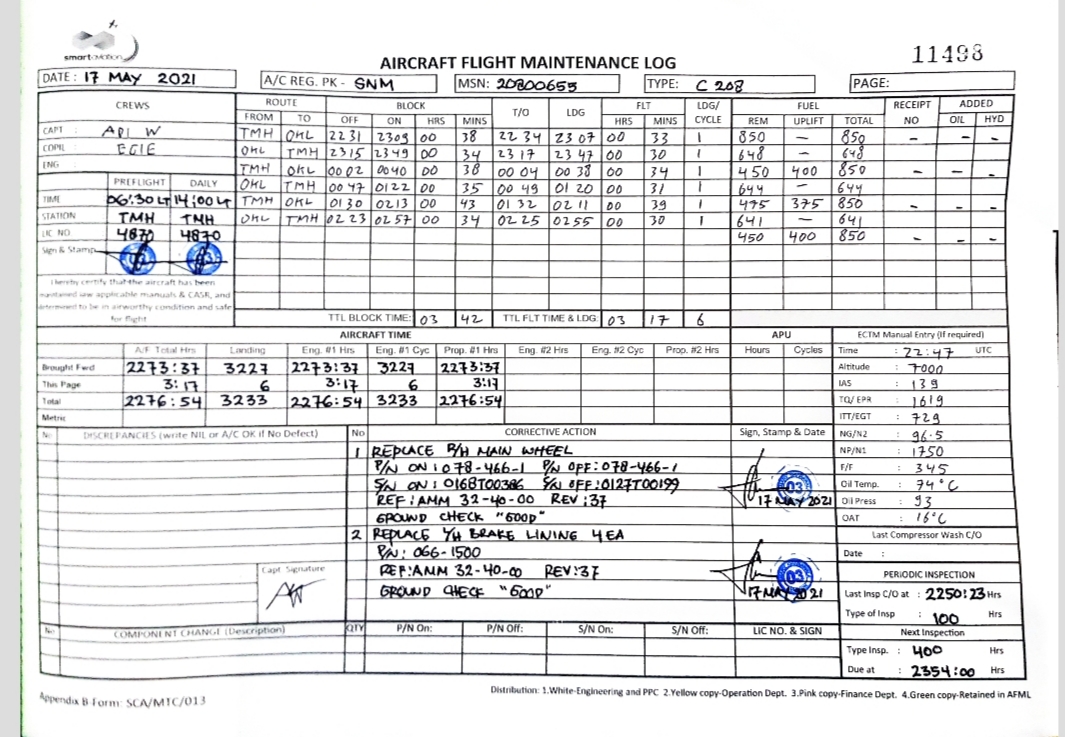 smartaviation
AIRCRAFT FLIGHT MAINTENANCE LOG
11498
DATE : 17 MAY 2021 A/C REG. PK - SNM MSN: 20800655 TYPE: C 208 PAGE:
CREWS ROUTE BLOCK T/O LDG FLT LDG/ CYCLE FUEL RECEIPT NO ADDED
FROM TO OFF ON HRS MINS HRS MINS REM UPLIFT TOTAL OIL HYD
CAPT : ADI W TMH OKL 2231 2309 00 38 2234 2307 00 33 1 850 – 850 – – –
COPIL : EGIE OKL TMH 2315 2349 00 34 2317 2347 00 30 1 648 – 648
ENG : TMH OKL 0002 0040 00 38 0004 0038 00 34 1 450 400 850 – – –
PREFLIGHT DAILY OKL TMH 0047 0122 00 35 0049 0120 00 31 1 644 – 644
TIME 06:30 LT 14:00 LT TMH OKL 0130 0213 00 43 0132 0211 00 39 1 475 375 850 – – –
STATION TMH TMH OKL TMH 0223 0257 00 34 0225 0255 00 30 1 641 – 641
LIC NO 4870 4870 450 400 850 – – –
Sign & Stamp
I hereby certify that the aircraft has been
maintained iaw applicable manuals & CASR, and
determined to be in airworthy condition and safe
for flight
TTL BLOCK TIME: 03 42 TTL FLT TIME & LDG: 03 17 6
AIRCRAFT TIME APU ECTM Manual Entry (If required)
A/F Total Hrs Landing Eng. #1 Hrs Eng. #1 Cyc Prop. #1 Hrs Eng. #2 Hrs Eng. #2 Cyc Prop. #2 Hrs Hours Cycles Time : 22:47 UTC
Brought Fwd 2273:37 3227 2273:37 3227 2273:37 Altitude : 7000
This Page 3:17 6 3:17 6 3:17 IAS : 139
Total 2276:54 3233 2276:54 3233 2276:54 TQ/ EPR : 1619
Metric ITT/EGT : 729
No DISCREPANCIES (write NIL or A/C OK if No Defect) No CORRECTIVE ACTION Sign, Stamp & Date NG/N2 : 96.5
1 REPLACE R/H MAIN WHEEL NP/N1 : 1750
P/N ON : 078-466-1 P/N OFF: 078-466-1 F/F : 345
S/N ON : 0168T00386 S/N OFF: 0127T00199 03 Oil Temp. : 74°C
REF : AMM 32-40-00 REV : 37 17 MAY 2021 Oil Press : 93
GROUND CHECK "GOOD" OAT : 16°C
2 REPLACE L/H BRAKE LINING 4 EA Last Compressor Wash C/O
P/N : 066-1500 Date :
Capt Signature REF: AMM 32-40-00 REV: 37 03 PERIODIC INSPECTION
GROUND CHECK "GOOD" 17 MAY 2021 Last Insp C/O at : 2250:23 Hrs
Type of Insp : 100 Hrs
No COMPONENT CHANGE (Description) QTY P/N On: P/N Off: S/N On: S/N Off: LIC NO. & SIGN Next Inspection
Type Insp. : 400 Hrs
Due at : 2354:00 Hrs
Appendix B Form: SCA/MTC/013
Distribution: 1.White-Engineering and PPC 2.Yellow copy-Operation Dept. 3.Pink copy-Finance Dept. 4.Green copy-Retained in AFML